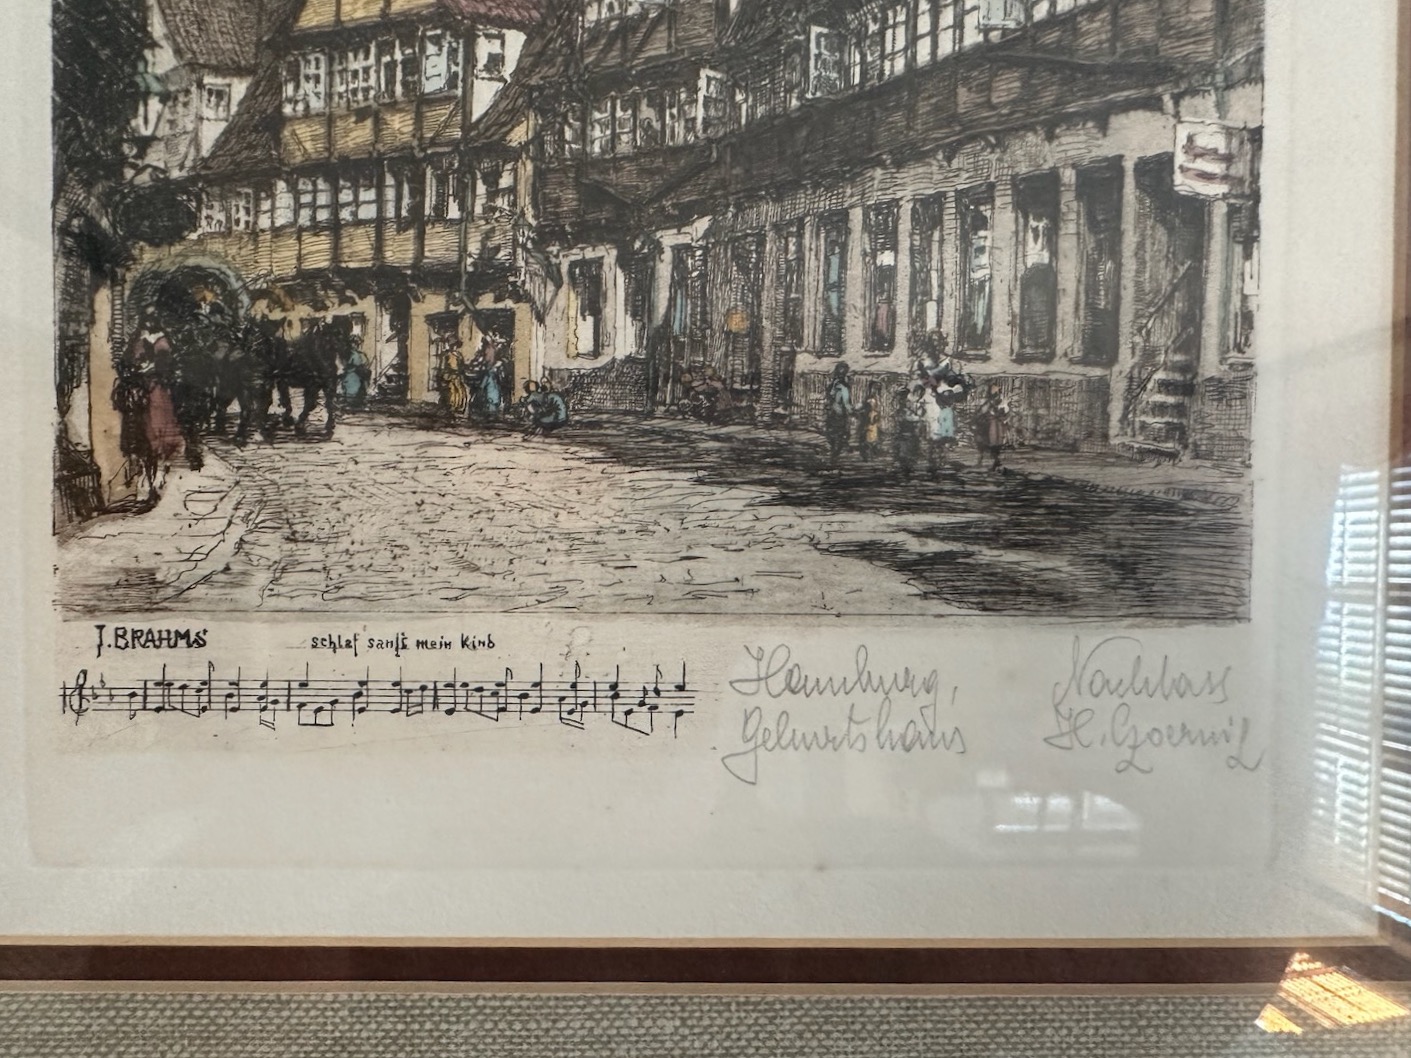 J. BRAHMS
schlaf sanft mein Kind
Hamburg,
Geburtshaus
Nachlass
H. Czoernig